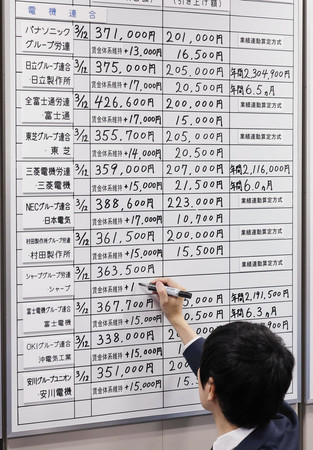 電機連合
パナソニック
グループ労連
3/12
371,000円
201,000円
業績連動算定方式
賃金体系維持+13,000円
16,500円
日立グループ連合
・日立製作所
3/12
375,000円
205,000円
年間2,304,900円
賃金体系維持+17,000円
20,500円
年間6.5ヵ月
全富士通労連
・富士通
3/12
426,600円
200,000円
業績連動算定方式
賃金体系維持+17,000円
東芝グループ連合
・東芝
3/12
355,700円
205,000円
業績連動算定方式
賃金体系維持+14,000円
20,500円
三菱電機労連
・三菱電機
3/12
359,000円
207,000円
年間2,116,000円
賃金体系維持+15,000円
21,500円
年間6.0ヵ月
NECグループ連合
・日本電気
3/12
388,600円
223,000円
業績連動算定方式
賃金体系維持+17,000円
10,700円
村田製作所グループ労連
・村田製作所
3/12
361,500円
200,000円
業績連動算定方式
賃金体系維持+15,000円
15,500円
シャープグループ労連
・シャープ
3/12
363,500円
業績連動算定方式
賃金体系維持+1
富士電機グループ連合
・富士電機
3/12
367,700円
年間2,191,500円
賃金体系維持+15,000円
20,500円
年間6.3ヵ月
OKIグループ連合
・沖電気工業
3/12
338,000円
賃金体系維持+15,000円
安川グループユニオン
・安川電機
3/12
351,000円
賃金体系維持+15,000円